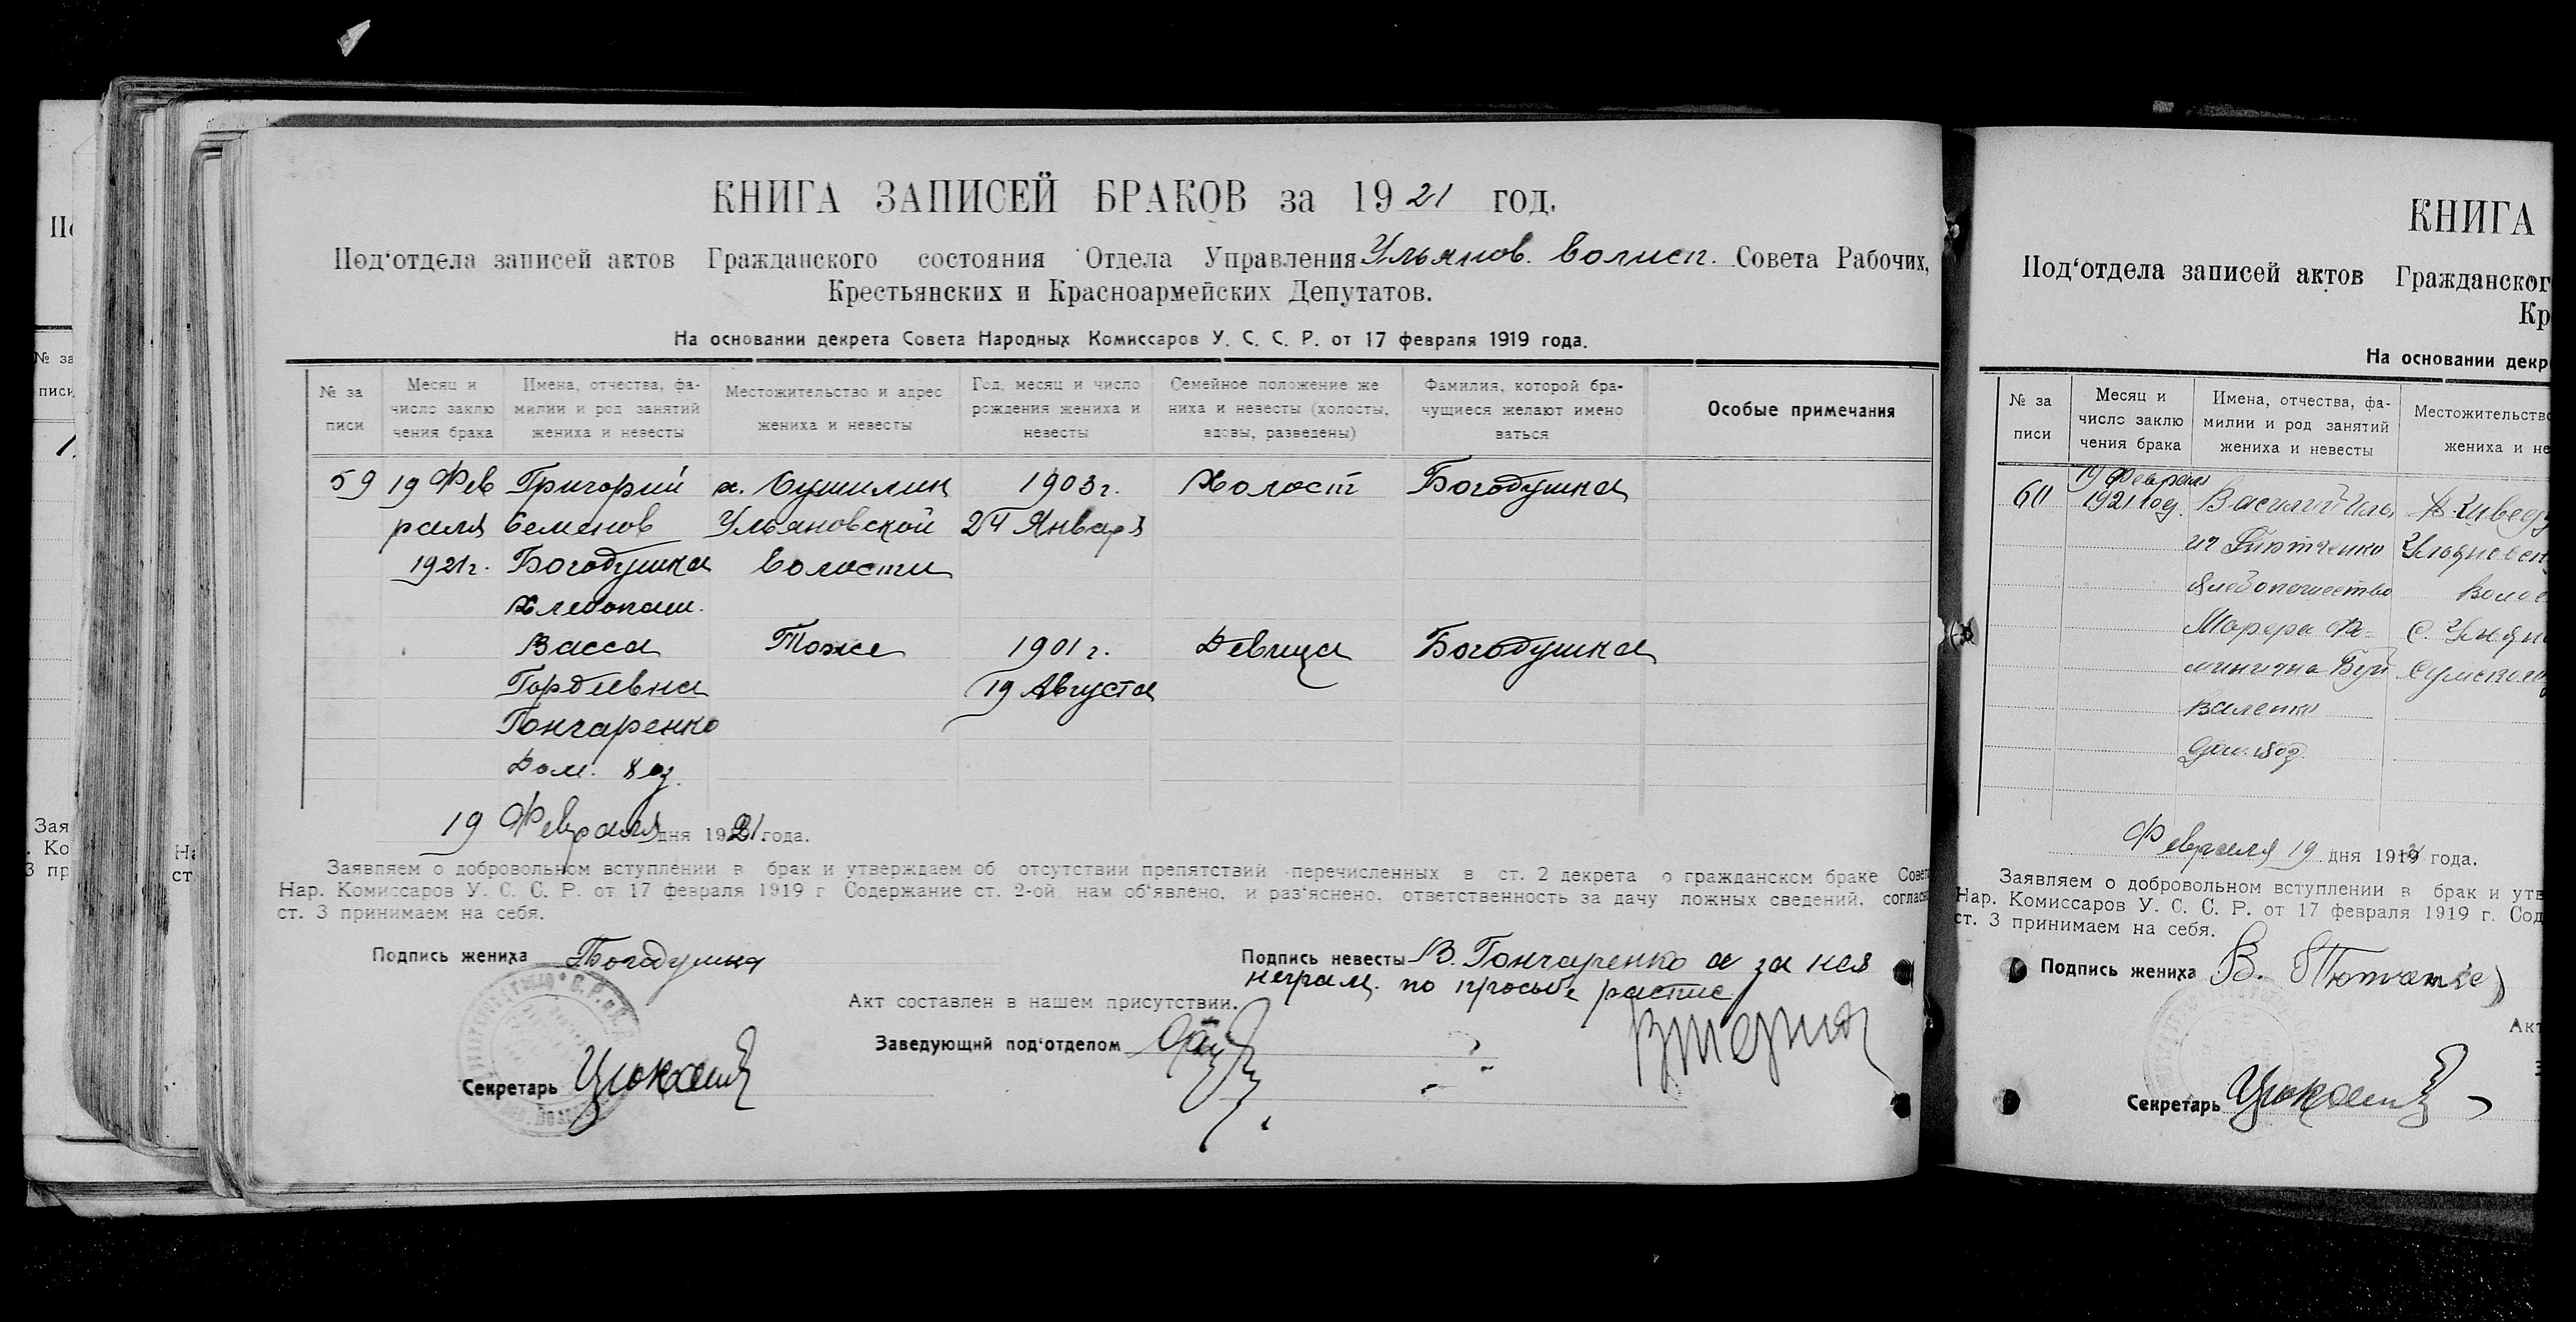 КНИГА ЗАПИСЕЙ БРАКОВ за 1921 год.
Под‘отдела записей актов Гражданского состояния Отдела Управления Ульянов. волисп. Совета Рабочих,
Крестьянских и Красноармейских Депутатов.
На основании декрета Совета Народных Комиссаров У. С. С. Р. от 17 февраля 1919 года.
№ за
писи
Месяц и
число заклю
чения брака
Имена, отчества, фа-
милии и род занятий
жениха и невесты
Местожительство и адрес
жениха и невесты
Год, месяц и число
рождения жениха и
невесты
Семейное положение же
ниха и невесты (холосты,
вдовы, разведены)
Фамилия, которой бра-
чущиеся желают имено
ваться
Особые примечания
59 19 Фев Григорий х. Сушилин 1903 г. Холост Богодушка
раля Семенов Ульяновской 24 Января
1921 г. Богодушка волости
Хлебопаш.
Васса Тоже 1901 г. Девица Богодушка
Гордиевна 19 Августа
Гончаренко
Дом. хоз.
19 Февраля дня 1921 года.
Заявляем о добровольном вступлении в брак и утверждаем об отсутствии препятствий перечисленных в ст. 2 декрета о гражданском браке Совета
Нар. Комиссаров У. С. С. Р. от 17 февраля 1919 г Содержание ст. 2-ой нам об‘явлено, и раз‘яснено, ответственность за дачу ложных сведений, согласно
ст. 3 принимаем на себя.
Подпись жениха Богодушка
Подпись невесты В. Гончаренко а за нея
неграм. по просьбе распис
Акт составлен в нашем присутствии.
Заведующий под‘отделом
Секретарь
КНИГА
Под‘отдела записей актов Гражданског
Кр
На основании декр
№ за
писи
Месяц и
число заклю
чения брака
Имена, отчества, фа-
милии и род занятий
жениха и невесты
Местожительство
жениха и не
19 Февраля
60 1921 год Василий
хлебопашество Волос
Дом. хоз.
Февраля 19 дня 1921 года.
Заявляем о добровольном вступлении в брак и утв
Нар. Комиссаров У. С. С. Р. от 17 февраля 1919 г. Сод
ст. 3 принимаем на себя.
Подпись жениха В.
Акт
Секретарь